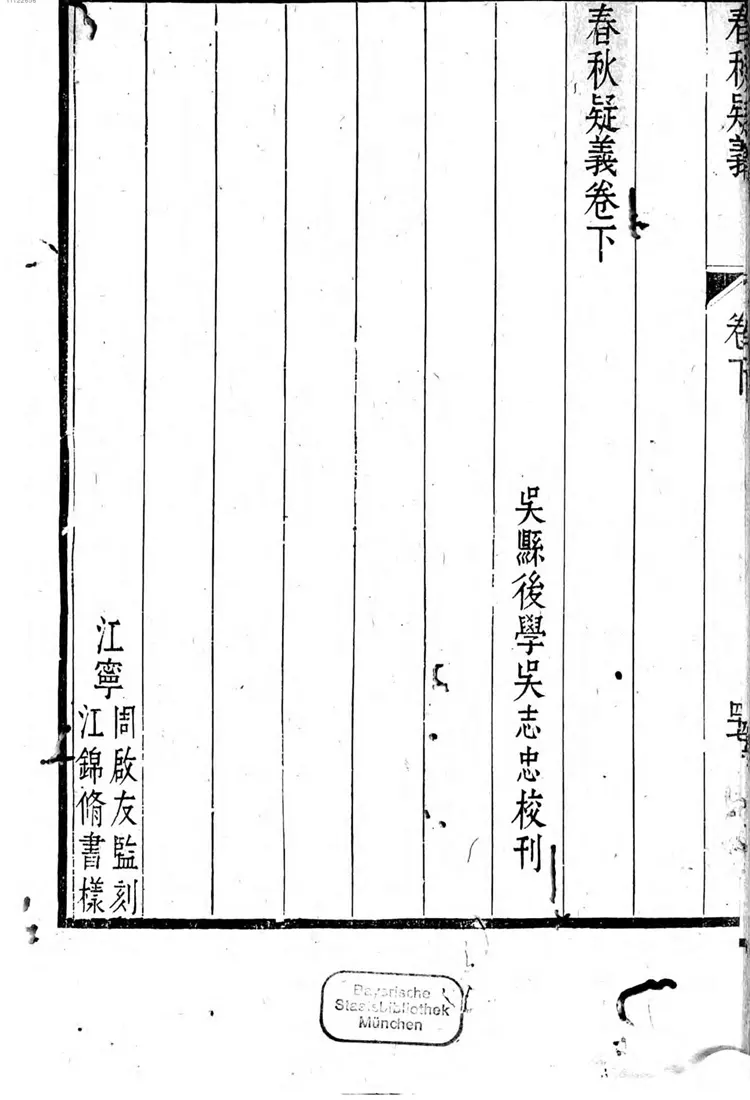 春秋疑義
卷下
春秋疑義卷下
吳縣後學吳志忠校刊
江寧
周啟友監刻
江錦脩書樣
Bayerische
Staatsbibliothek
München